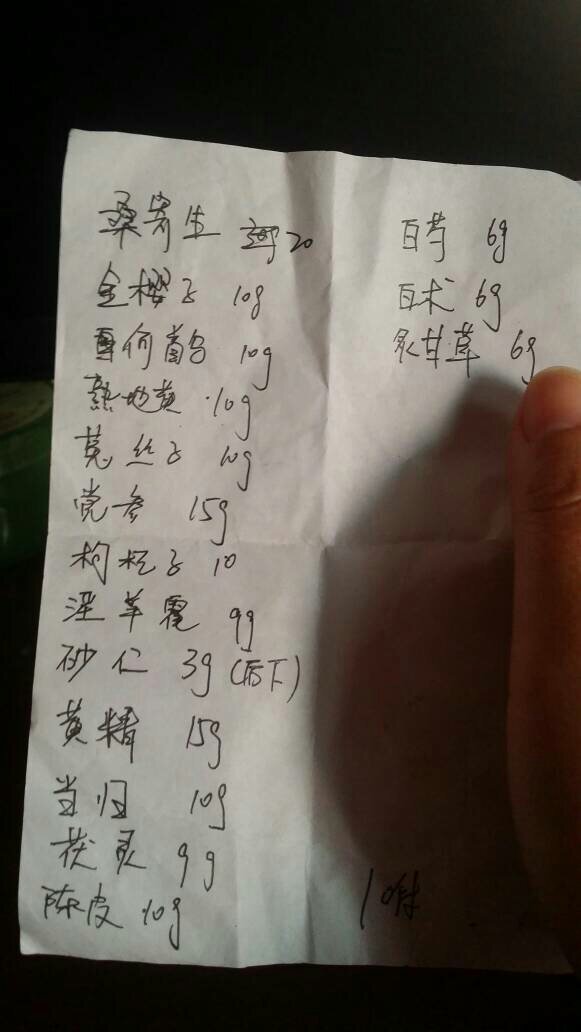 桑寄生 20
金樱子 10g
首乌 10g
熟地黄 10g
菟丝子 10g
党参 15g
枸杞子 10
淫羊藿 9g
砂仁 3g(后下)
黄精 15g
当归 10g
茯苓 9g
陈皮 10g
白芍 6g
白术 6g
炙甘草 6g